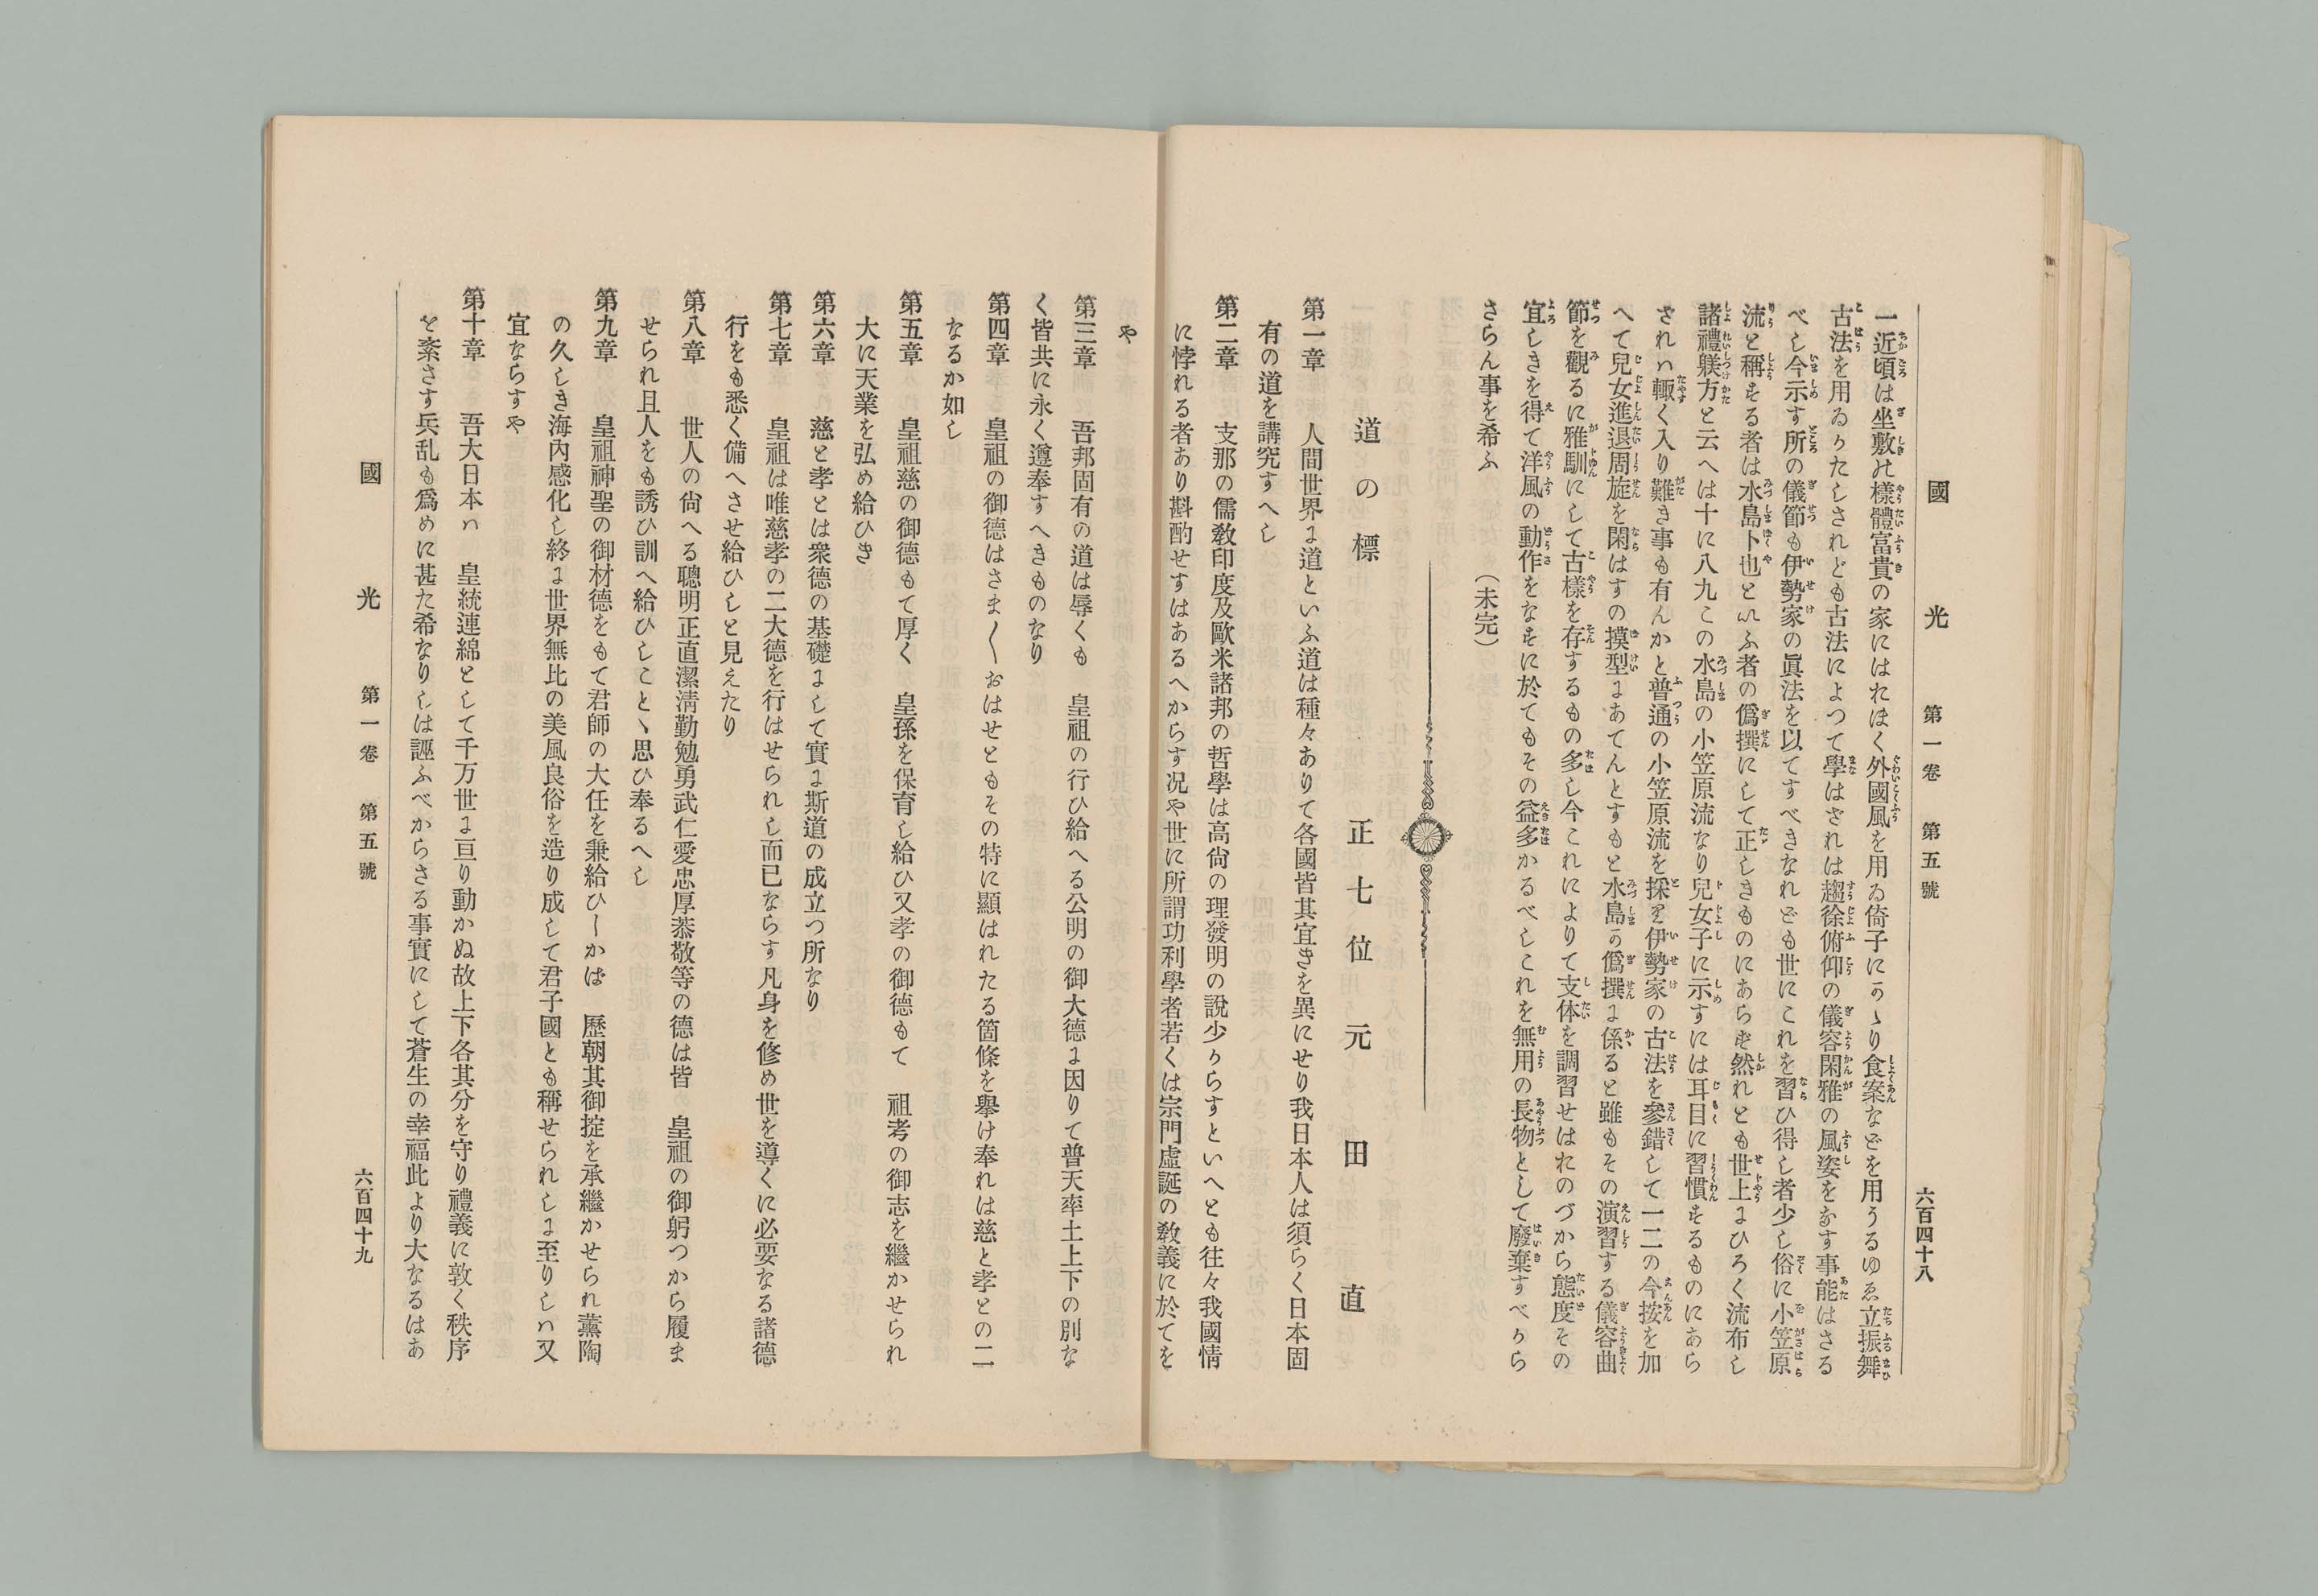 國光 第一卷 第五號 六百四十八
一近頃は坐敷の樣體富貴の家にはおほく外國風を用ゐ倚子にかゝり食案などを用うるゆゑ立振舞
古法を用ゐかたしされども古法によつて學はされは趨徐俯仰の儀容閑雅の風姿をなす事能はさる
べし今示す所の儀節も伊勢家の眞法を以てすべきなれども世にこれを習ひ得し者少し俗に小笠原
流と稱する者は水島卜也といふ者の僞撰にして正しきものにあらす然れとも世上にひろく流布し
諸禮躾方と云へは十に八九この水島の小笠原流なり兒女子に示すには耳目に習慣するものにあら
されハ輙く入り難き事も有んかと普通の小笠原流を採り伊勢家の古法を參錯して一二の今按を加
へて兒女進退周旋を閑はすの摸型にあてんとすもと水島か僞撰に係ると雖もその演習する儀容曲
節を觀るに雅馴にして古樣を存するもの多し今これによりて支体を調習せはおのづから態度その
宜しきを得て洋風の動作をなすに於てもその益多かるべしこれを無用の長物として廢棄すべから
さらん事を希ふ　　　（未完）
道の標
正七位 元田直
第一章　人間世界に道といふ道は種々ありて各國皆其宜きを異にせり我日本人は須らく日本固
有の道を講究すへし
第二章　支那の儒敎印度及歐米諸邦の哲學は高尙の理發明の說少からすといへとも往々我國情
に悖れる者あり斟酌せすはあるへからす况や世に所謂功利學者若くは宗門虛誕の敎義に於てを
や
第三章　吾邦固有の道は辱くも　皇祖の行ひ給へる公明の御大德に因りて普天率土上下の別な
く皆共に永く遵奉すへきものなり
第四章　皇祖の御德はさま〱おはせともその特に顯はれたる箇條を擧け奉れは慈と孝との二
なるか如し
第五章　皇祖慈の御德もて厚く　皇孫を保育し給ひ又孝の御德もて　祖考の御志を繼かせられ
大に天業を弘め給ひき
第六章　慈と孝とは衆德の基礎にして實に斯道の成立つ所なり
第七章　皇祖は唯慈孝の二大德を行はせられし而已ならす凡身を修め世を導くに必要なる諸德
行をも悉く備へさせ給ひしと見えたり
第八章　世人の尙へる聰明正直潔淸勤勉勇武仁愛忠厚恭敬等の德は皆　皇祖の御躬つから履ま
せられ且人をも誘ひ訓へ給ひしことゝ思ひ奉るへし
第九章　皇祖神聖の御材德をもて君師の大任を兼給ひしかば　歷朝其御掟を承繼かせられ薰陶
の久しき海內感化し終に世界無比の美風良俗を造り成して君子國とも稱せられしに至りしハ又
宜ならすや
第十章　吾大日本ハ　皇統連綿として千万世に亘り動かぬ故上下各其分を守り禮義に敦く秩序
を紊さす兵乱も爲めに甚た希なりしは誣ふべからさる事實にして蒼生の幸福此より大なるはあ
國光 第一卷 第五號 六百四十九